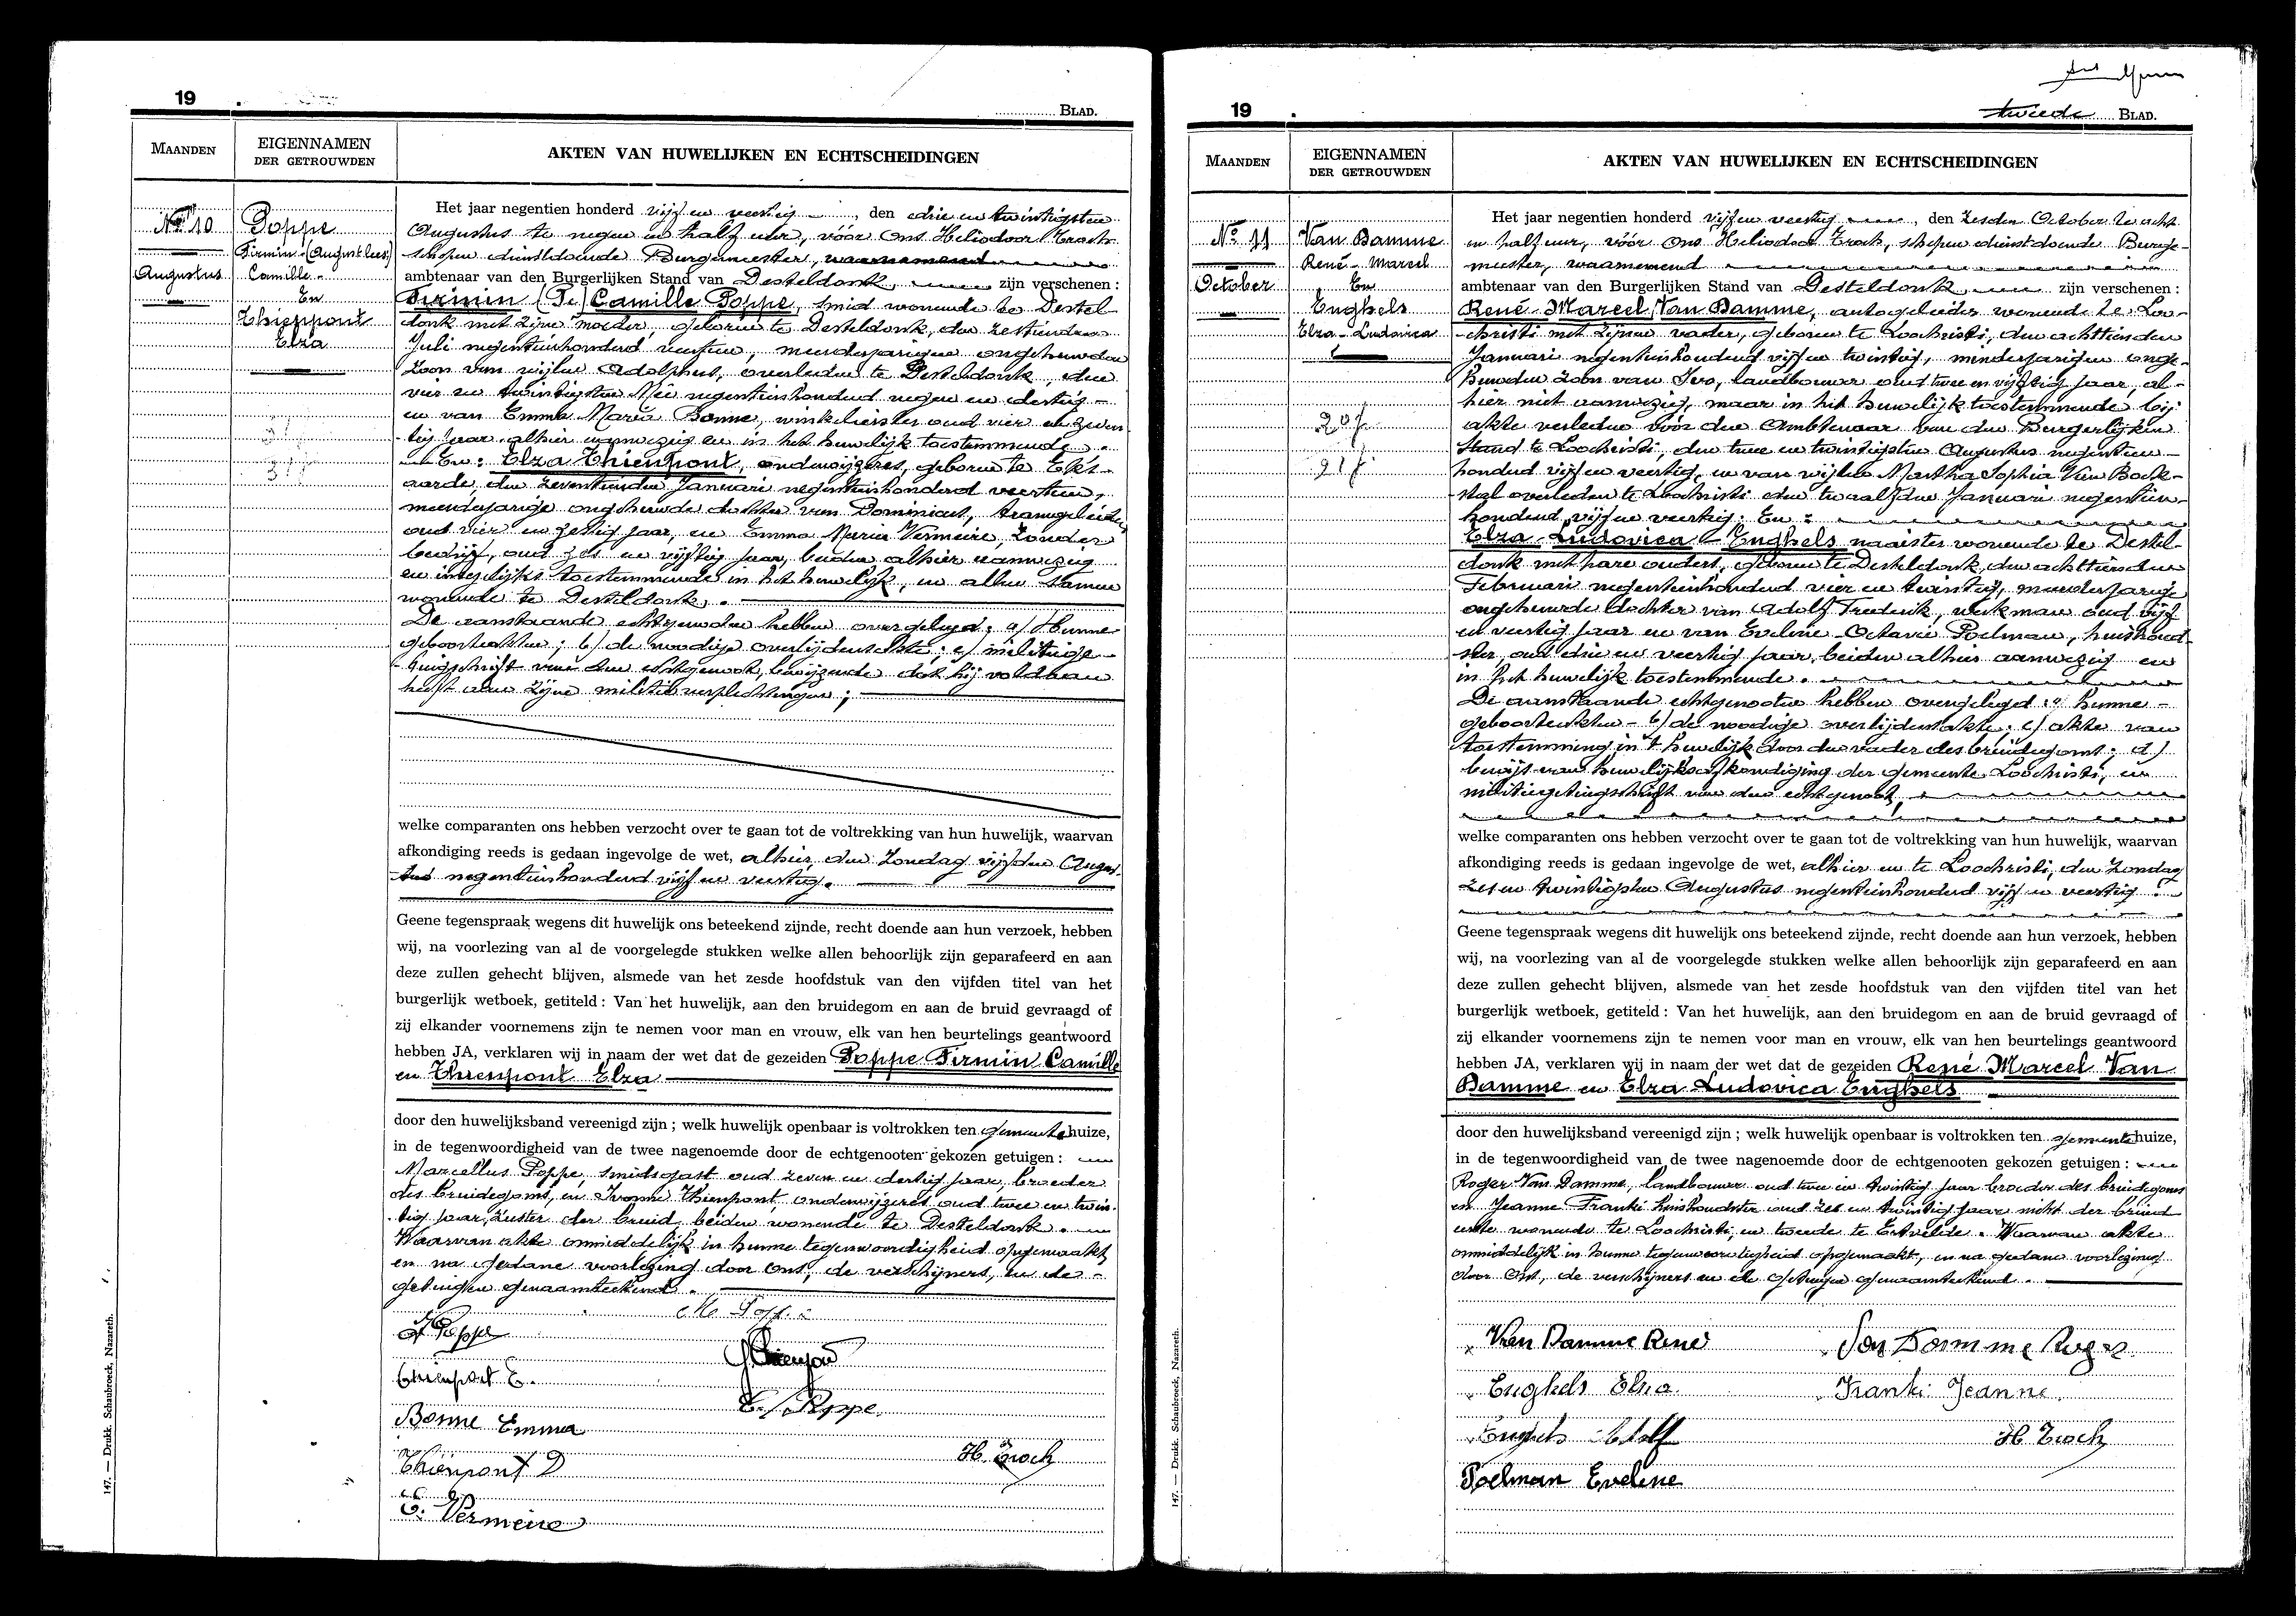 19
BLAD.
MAANDEN
EIGENNAMEN
DER GETROUWDEN
AKTEN VAN HUWELIJKEN EN ECHTSCHEIDINGEN
No 10
Augustus
Poppe
Firmin
Camille
En
Thienpont
Elza
Het jaar negentien honderd vijf en veertig, den drie en twintigsten
Augustus te negen en half ure, vóór Ons Heliodoor Troch
schepen dienstdoende Burgemeester, waarnemend
ambtenaar van den Burgerlijken Stand van Desteldonk, zijn verschenen :
Firmin Camille Poppe, smid wonende te Destel-
donk met zijne moeder, geboren te Desteldonk, den zestienden
Juli negentienhonderd veertien, meerderjarigen ongehuwden
zoon van wijlen Adolphus, overleden te Desteldonk, den
vier en twintigsten Mei negentienhonderd negen en dertig -
en van Emma Maria Bonne, winkelierster oud vier en zeven
tig jaar, alhier aanwezig en in het huwelijk toestemmende.
En: Elza Thienpont, onderwijzeres, geboren te Ekk-
aarde, den zeventienden Januari negentienhonderd veertien,
meerderjarige ongehuwde dochter van Dominicus, tramgeleider
oud vier en zestig jaar, en Emma Maria Vermeire, zonder
bedrijf, oud zes en vijftig jaar, beiden alhier aanwezig
en insgelijks toestemmende in het huwelijk, en allen samen
wonende te Desteldonk.
De aanstaande echtgenooten hebben overgelegd: a/ Hunne
geboorteakten; b/ de noodige overlijdensakte; c/ militiege-
tuigschrift van den echtgenoot, bewijzende dat hij voldaan
heeft aan zijne militieverplichtingen;
welke comparanten ons hebben verzocht over te gaan tot de voltrekking van hun huwelijk, waarvan
afkondiging reeds is gedaan ingevolge de wet, alhier den Zondag vijfden Augus-
tus negentienhonderd vijf en veertig.
Geene tegenspraak wegens dit huwelijk ons beteekend zijnde, recht doende aan hun verzoek, hebben
wij, na voorlezing van al de voorgelegde stukken welke allen behoorlijk zijn geparafeerd en aan
deze zullen gehecht blijven, alsmede van het zesde hoofdstuk van den vijfden titel van het
burgerlijk wetboek, getiteld : Van het huwelijk, aan den bruidegom en aan de bruid gevraagd of
zij elkander voornemens zijn te nemen voor man en vrouw, elk van hen beurtelings geantwoord
hebben JA, verklaren wij in naam der wet dat de gezeiden Poppe Firmin Camille
en Thienpont Elza
door den huwelijksband vereenigd zijn ; welk huwelijk openbaar is voltrokken ten gemeentehuize,
in de tegenwoordigheid van de twee nagenoemde door de echtgenooten gekozen getuigen :
Marcellus Poppe, smidsgast oud zeven en dertig jaar, broeder
des bruidegoms, en Ivonne Thienpont, onderwijzeres oud twee en twin-
tig jaar, zuster der bruid, beiden wonende te Desteldonk.
Waarvan akte onmiddelijk in hunne tegenwoordigheid opgemaakt
en na gedane voorlezing door Ons, de verschijners, en de
getuigen genaamteekend.
F. Poppe
M. Poppe
Thienpont E.
Y. Thienpont
Bonne Emma
Poppe
Thienpont D
H. Troch
E. Vermeire
147. — Drukk. Schaubroeck, Nazareth.
19
tweede BLAD.
MAANDEN
EIGENNAMEN
DER GETROUWDEN
AKTEN VAN HUWELIJKEN EN ECHTSCHEIDINGEN
No 11
October
Van Damme
René - Marcel
En
Enghels
Elza - Ludovica
Het jaar negentien honderd vijf en veertig, den zesden October te acht
en half uur, vóór Ons Heliodoor Troch, schepen dienstdoende Burge-
meester, waarnemend
ambtenaar van den Burgerlijken Stand van Desteldonk, zijn verschenen :
René-Marcel Van Damme, autogeleider wonende te Loo-
christi met zijnen vader, geboren te Loochristi, den achttienden
Januari negentienhonderd vijf en twintig, minderjarigen onge-
huwden zoon van Ivo, landbouwer oud twee en vijftig jaar, al-
hier niet aanwezig, maar in het huwelijk toestemmende bij
akte verleden vóór den Ambtenaar van den Burgerlijken
Stand te Loochristi, den twee en twintigsten Augustus negentien-
honderd vijf en veertig, en van wijlen Martha Sophia Van Bock-
stal overleden te Loochristi den twaalfden Januari negentien-
honderd vijf en veertig: En:
Elza - Ludovica - Enghels naaister wonende te Destel-
donk met hare ouders, geboren te Desteldonk, den achttienden
Februari negentienhonderd vier en twintig, meerderjarige
ongehuwde dochter van Adolf Frederik, werkman oud vijf
en veertig jaar en van Eveline-Octavie Poelman, huishoud-
ster, oud drie en veertig jaar, beiden alhier aanwezig en
in het huwelijk toestemmende.
De aanstaande echtgenooten hebben overgelegd: a/ hunne -
geboorteakten - b/ de noodige overlijdensakte; c/ akte van
toestemming in 't huwelijk door den vader des bruidegoms; d/
bewijs van huwelijksafkondiging der gemeente Loochristi, en
militiegetuigschrift van den echtgenoot,
welke comparanten ons hebben verzocht over te gaan tot de voltrekking van hun huwelijk, waarvan
afkondiging reeds is gedaan ingevolge de wet, alhier en te Loochristi, den Zondag
zes en twintigsten Augustus negentienhonderd vijf en veertig.
Geene tegenspraak wegens dit huwelijk ons beteekend zijnde, recht doende aan hun verzoek, hebben
wij, na voorlezing van al de voorgelegde stukken welke allen behoorlijk zijn geparafeerd en aan
deze zullen gehecht blijven, alsmede van het zesde hoofdstuk van den vijfden titel van het
burgerlijk wetboek, getiteld : Van het huwelijk, aan den bruidegom en aan de bruid gevraagd of
zij elkander voornemens zijn te nemen voor man en vrouw, elk van hen beurtelings geantwoord
hebben JA, verklaren wij in naam der wet dat de gezeiden René Marcel Van
Damme en Elza Ludovica Enghels
door den huwelijksband vereenigd zijn ; welk huwelijk openbaar is voltrokken ten gemeentehuize,
in de tegenwoordigheid van de twee nagenoemde door de echtgenooten gekozen getuigen :
Roger Van Damme, landbouwer oud twee en twintig jaar broeder des bruidegoms
en Jeanne Franki huishoudster oud zes en twintig jaar nicht der bruid
eerste wonende te Loochristi, en tweede te Ertvelde. Waarvan akte
onmiddelijk in hunne tegenwoordigheid opgemaakt, en na gedane voorlezing
door Ons, de verschijners en de getuigen genaamteekend.
Van Damme René
Van Damme Roger
Enghels Elza
Franki Jeanne.
Enghels Adolf
H. Troch
Poelman Eveline
147. — Drukk. Schaubroeck, Nazareth.